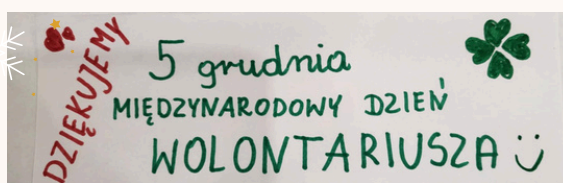 DZIĘKUJEMY
5 grudnia
MIĘDZYNARODOWY DZIEŃ
WOLONTARIUSZA Ü